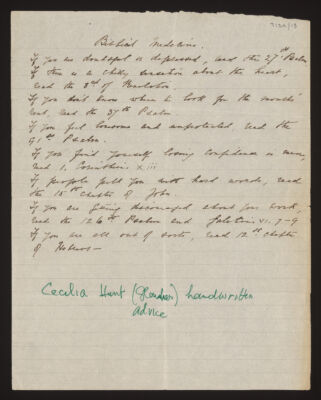 Biblical Medicine.
If you are down or depressed, read the 27th Psalm
If there is a chilly sensation about the heart,
read the 3rd of Revelation.
If you don't know where to look for the month's
rent, read the 37th Psalm
If you feel lonesome and unprotected, read the
91st Psalm.
If you find yourself losing confidence in men,
read 1. Corinthians XIII
If people pelt you with hard words, read
the 15th chapter of John
If you are getting discouraged about your work,
read the 126th Psalm and Galatians VI. 7-9
If you are all out of sorts, read 12th chapter
of Hebrews —
Cecilia Hunt handwritten
advice